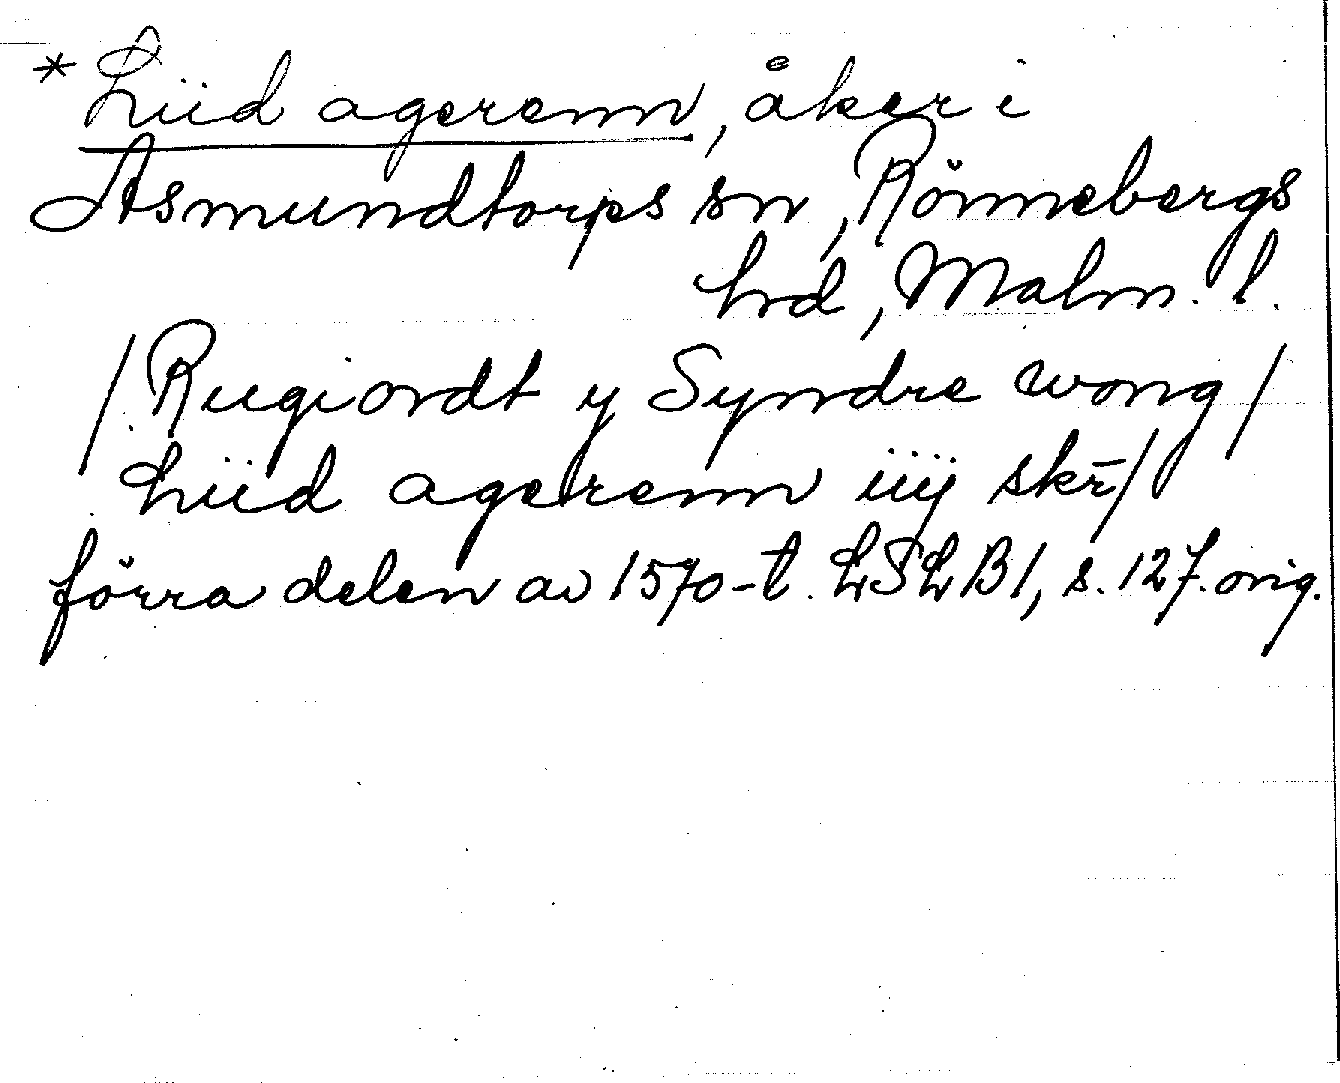 * Liid agerenn, åker i
Asmundtorps sn, Rönnebergs
hrd, Malm. l.
/Rugiordt y Syndre wong/
Liid agerenn iiij skr̄/
förra delen av 1570-t. LSLB1, s. 127. orig.